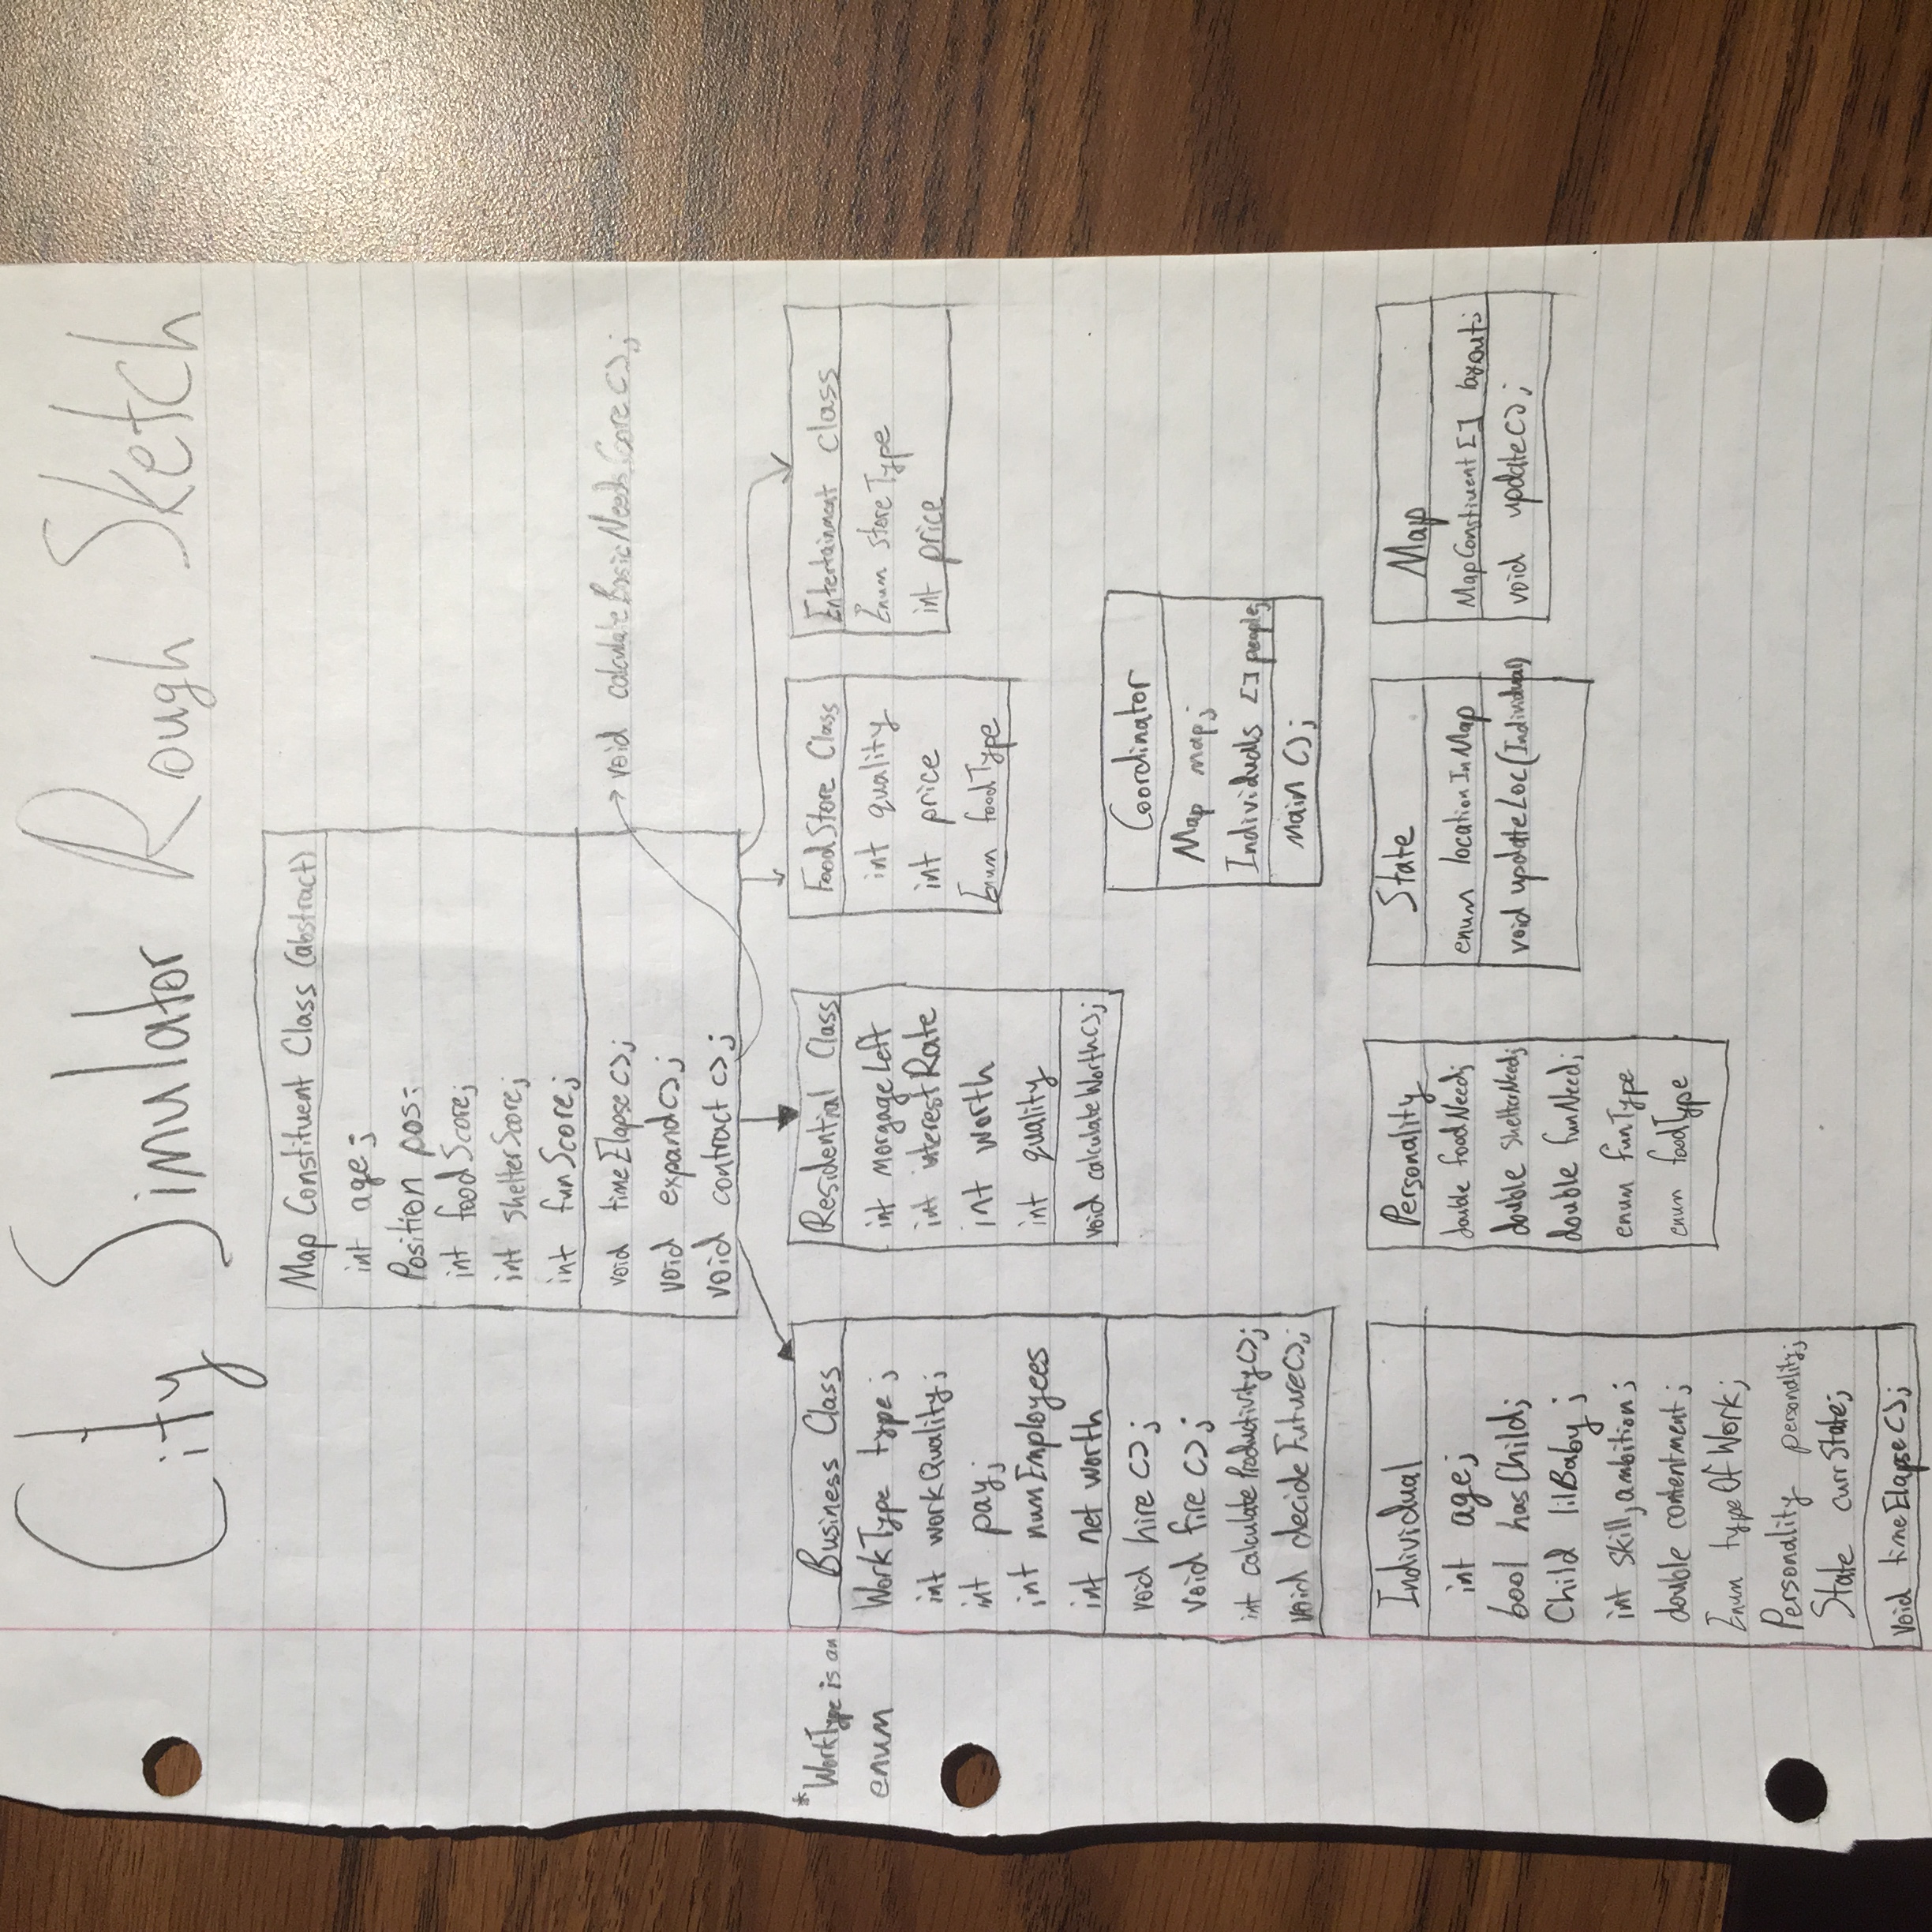 City Simulator Rough Sketch
Map Constituent Class (abstract)
int age;
Position pos;
int foodScore;
int shelterScore;
int funScore;
void timeElapse();
void expand();
void contract();
void calculateBasicNeedsScore();
*WorkType is an
enum
Business Class
WorkType type;
int workQuality;
int pay;
int numEmployees
int net worth
void hire();
void fire();
int calculateProductivity();
void decideFuture();
Residential Class
int morgageLeft
int interestRate
int worth
int quality
void calculateWorth();
FoodStore Class
int quality
int price
Enum foodType
Entertainment class
Enum storeType
int price
Coordinator
Map map;
Individuals [] people;
main();
Individual
int age;
bool hasChild;
Child lilBaby;
int skill, ambition;
double contentment;
Enum typeOfWork;
Personality personality;
State currState;
void timeElapse();
Personality
double foodNeed;
double shelterNeed;
double funNeed;
enum funType
enum foodType
State
enum locationInMap
void updateLoc(Individual)
Map
MapConstiuent [] layout;
void update();